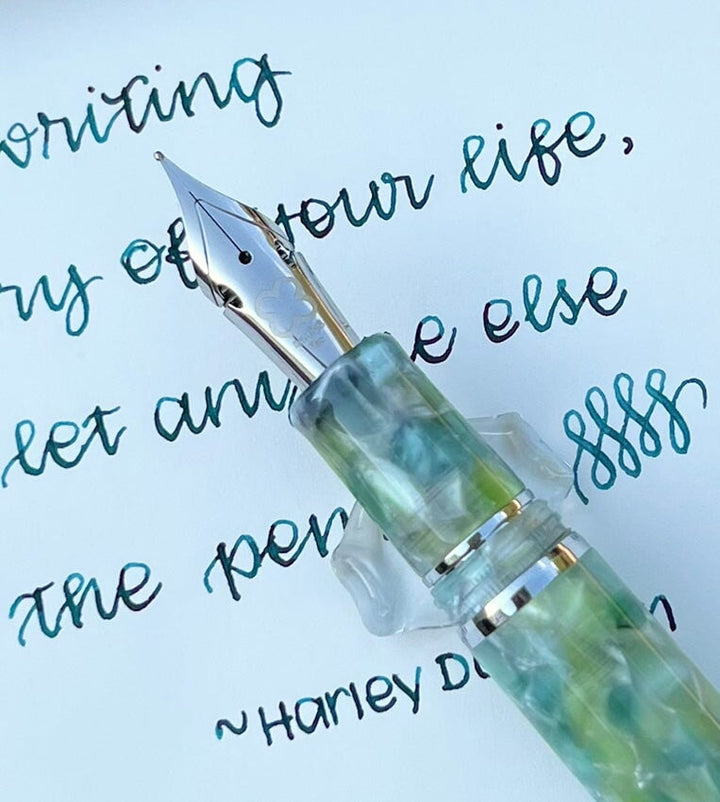 writing
of your life,
let any else
the pen
~Harley